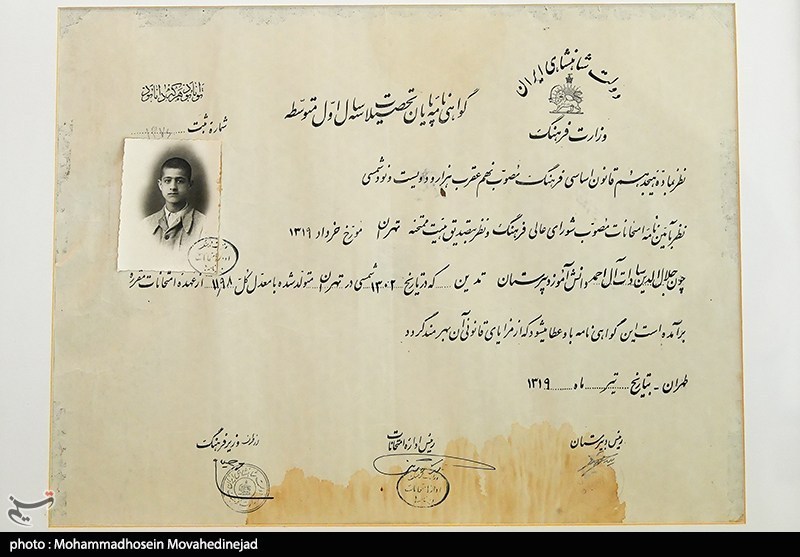 دولت شاهنشاهی ایران
وزارت فرهنگ
گواهی‌نامهٔ پایان تحصیلات سه سال اول متوسطه
توانا بود هر که دانا بود
شمارهٔ ثبت
نظر بمادهٔ هیجدهم قانون اساسی فرهنگ مصوب نهم عقرب هزار و دویست و نود شمسی
نظر بآئین نامهٔ امتحانات مصوب شورای عالی فرهنگ و نظر بتصدیق هیئت ممتحنه تهران مورخ خرداد ۱۳۱۹
چون جلال الدین سادات آل احمد دانش آموز دبیرستان تمدن که در تاریخ ۱۳۰۲ شمسی در تهران متولد شده با معدل کل ۱۱٫۹۸ از عهده امتحانات مقرره
برآمده است این گواهی نامه باو عطا میشود که از مزایای قانونی آن بهره‌مند گردد
طهران - بتاریخ تیر ماه ۱۳۱۹
رئیس دبیرستان
رئیس ادارهٔ امتحانات
از طرف وزیر فرهنگ
تسنیم
photo : Mohammadhosein Movahedinejad